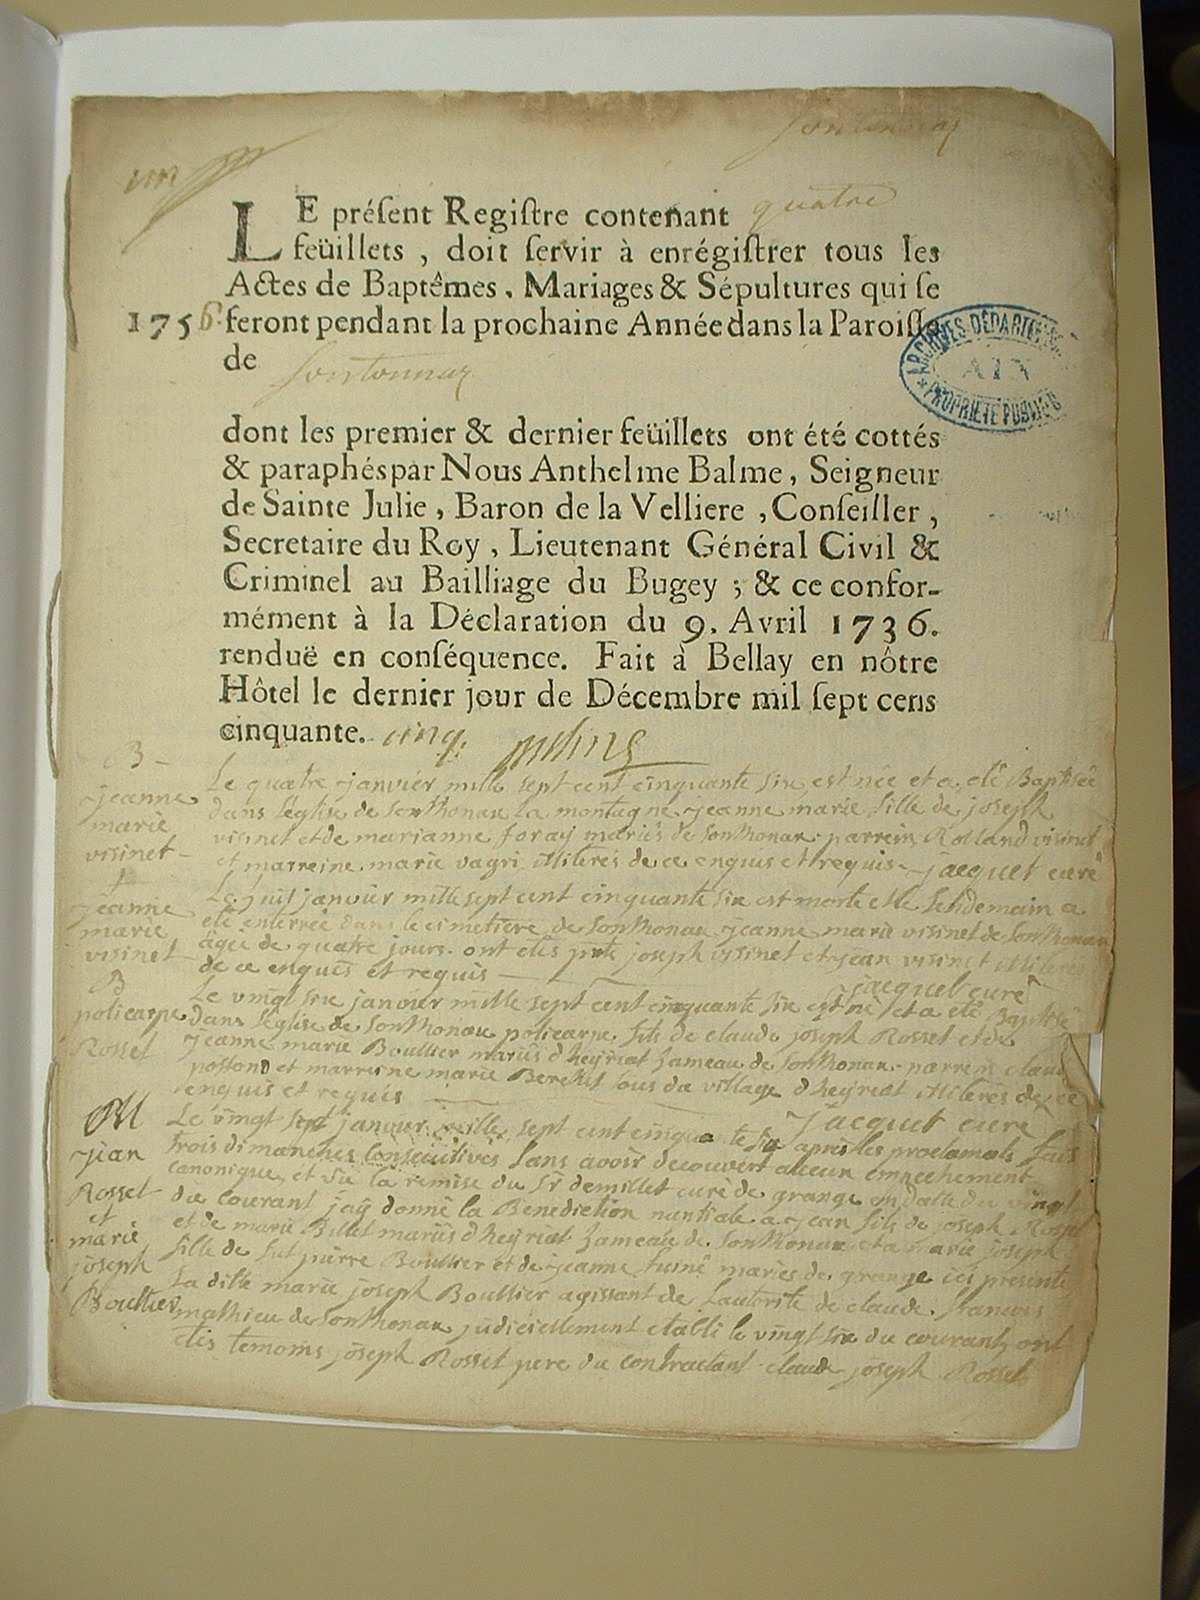 un
LE préſent Regiſtre contenant quatre
feüillets, doit ſervir à enrégiſtrer tous les
Actes de Baptêmes, Mariages & Sépultures qui ſe
1756. feront pendant la prochaine Année dans la Paroiſſe
de Sontonnax
ARCHIVES DÉPARTEM
AIN
PROPRIÉTÉ PUBLIQUE
dont les premier & dernier feüillets ont été cottés
& paraphés par Nous Anthelme Balme, Seigneur
de Sainte Julie, Baron de la Velliere, Conſeiller,
Secretaire du Roy, Lieutenant Général Civil &
Criminel au Bailliage du Bugey; & ce confor-
mément à la Déclaration du 9. Avril 1736.
renduë en conſéquence. Fait à Bellay en nôtre
Hôtel le dernier jour de Décembre mil ſept cens
cinquante. cinq.
B
jeanne
marie
visinet
Le quatre janvier mille sept cent cinquante six est née et a eté Baptisée
dans l'église de Sonthonax la montagne jeanne marie fille de joseph
visinet et de marianne foray mariés de Sonthonax parrein Rolland visinet
et marreine marie vagri illiterés de ce enquis et requis jacquet curé
†
jeanne
marie
visinet
Le huit janvier mille sept cent cinquante six est morte et le lendemain a
eté enterrée dans le cimetière de Sonthonax jeanne marie visinet de Sonthonax
agée de quatre jours ont etés joseph visinet et jean visinet illiterés
de ce enquis et requis jacquet curé
B
policarpe
Rosset
Le vingt six janvier mille sept cent cinquante six est né et a eté Baptisé
dans l'église de Sonthonax policarpe fils de claude joseph Rosset et de
jeanne marie Boullier mariés d'heyriat hameau de Sonthonax parrein claude
et marreine marie tous du village d'heyriat illiterés de ce
enquis et requis jacquet curé
M
jean
Rosset
et
marie
joseph
Boullier
Le vingt sept janvier mille sept cent cinquante six après les proclamats fais
trois dimanches consecutives sans avoir decouvert aucun empechement
canonique et vu la remise du Sr demillet curé de grange en datte du vingt
du courant jay donné la Benediction nuptiale a jean fils de joseph Rosset
et de marie Billet mariés d'heyriat hameau de Sonthonax et a marie joseph
fille de fut pierre Boullier et de jeanne mariés de grange ici presente
la ditte marie joseph Boullier agissant de l'autorité de claude francois
mathieu de Sonthonax judiciellement etabli le vingt six du courant ont
etés temoins joseph Rosset pere du contractant claude joseph Rosset